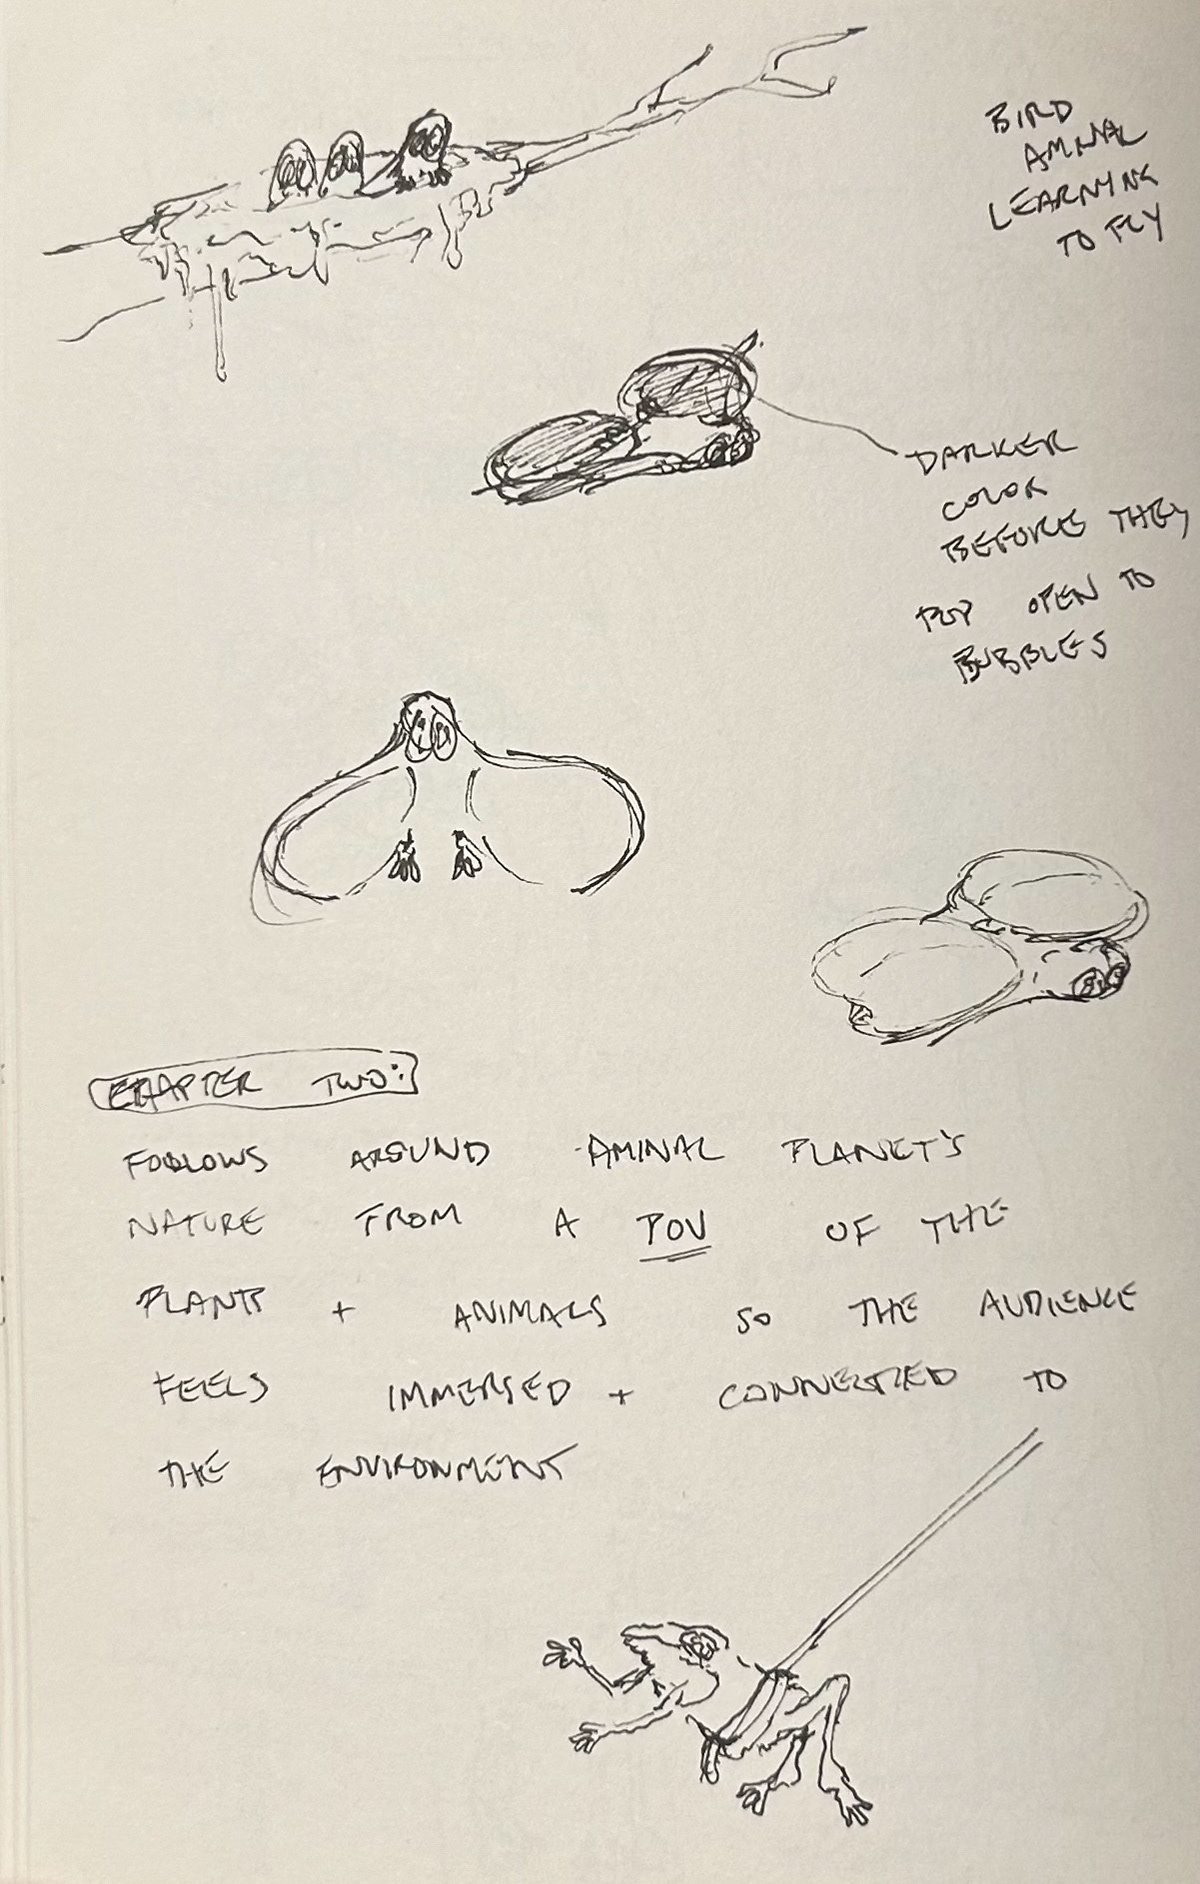 BIRD
AMINAL
LEARNING
TO FLY
DARKER
COLOR
BEFORE THEY
POP OPEN TO
BUBBLES
CHAPTER TWO:
FOLLOWS AROUND AMINAL PLANET'S
NATURE FROM A POV OF THE
PLANTS + ANIMALS SO THE AUDIENCE
FEELS IMMERSED + CONNECTED TO
THE ENVIRONMENT